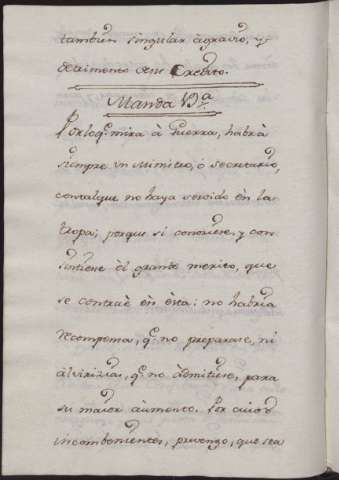 tambien singular agravio, y
detrimento de su Credito.
Manda 13ª
Por lo q.e mira à Guerra, habrà
siempre un Ministro, ó Secretario,
con tal que no haya servido en la
tropa; porque si conociese, y con
sintiese èl grande merito, que
se contraè en esta: no habria
recompensa, q.e no preparase, ni
q.e no admitiese, para
su maior aumento. Por cuios
incombenientes, prevengo, que sea